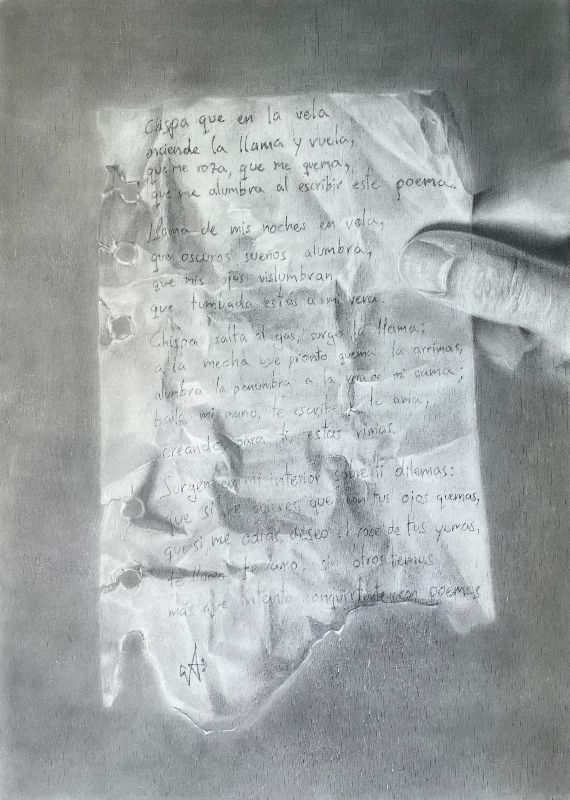 Chispa que en la vela
enciende la llama y vuela,
que me roza, que me quema,
que me alumbra al escribir este poema.
Llama de mis noches en vela,
que oscuros sueños alumbra,
que mis ojos vislumbran
que tumbada estás a mi vera.
Chispa, salta el gas, surge la llama;
a la mecha que pronto quema la arrimas,
alumbra la penumbra a la vera de mi cama,
baila mi mano, te escribe, te ama,
creando para ti estas rimas.
Surgen en mi interior sobre ti dilemas:
que si me quieres, que con tus ojos quemas,
que si me odias, deseo el roce de tus yemas,
te llamo, te amo, sin otros temas
más que intento conquistarte con poemas